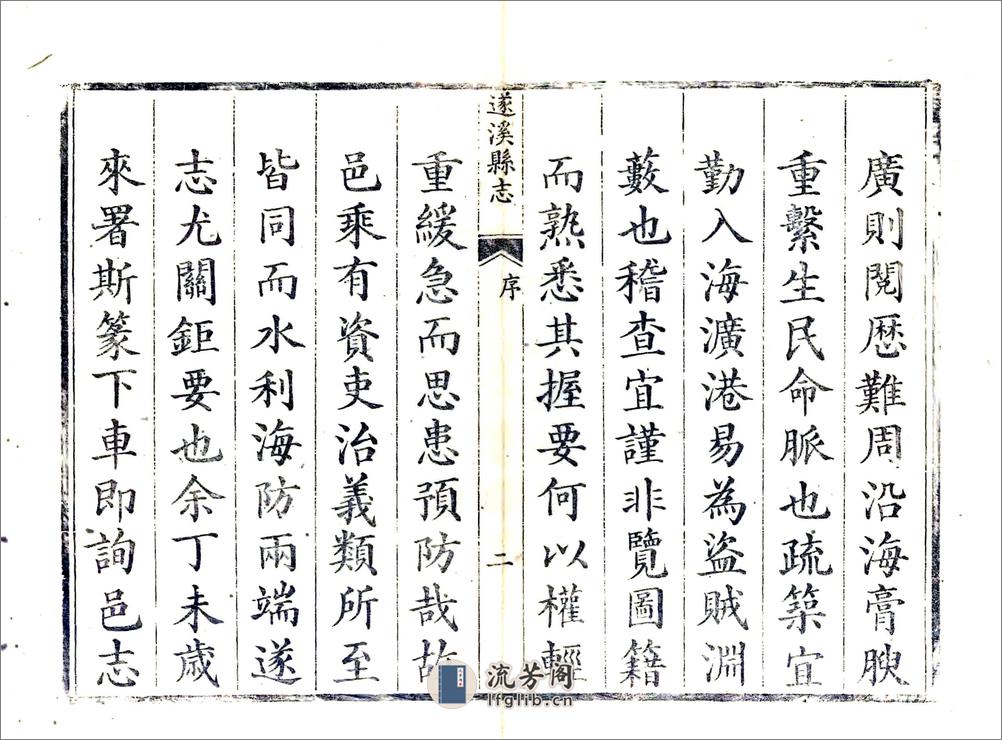 廣則閱歷難周沿海膏腴
重繫生民命脈也疏築宜
勤入海瀇港易為盜賊淵
藪也稽查宜謹非覽圖籍
而熟悉其握要何以權輕
遂溪縣志
序
二
重緩急而思患預防哉故
邑乘有資吏治義類所至
皆同而水利海防兩端遂
志尤關鉅要也余丁未歲
來署斯篆下車即詢邑志
流芳阁
lfglib.cn